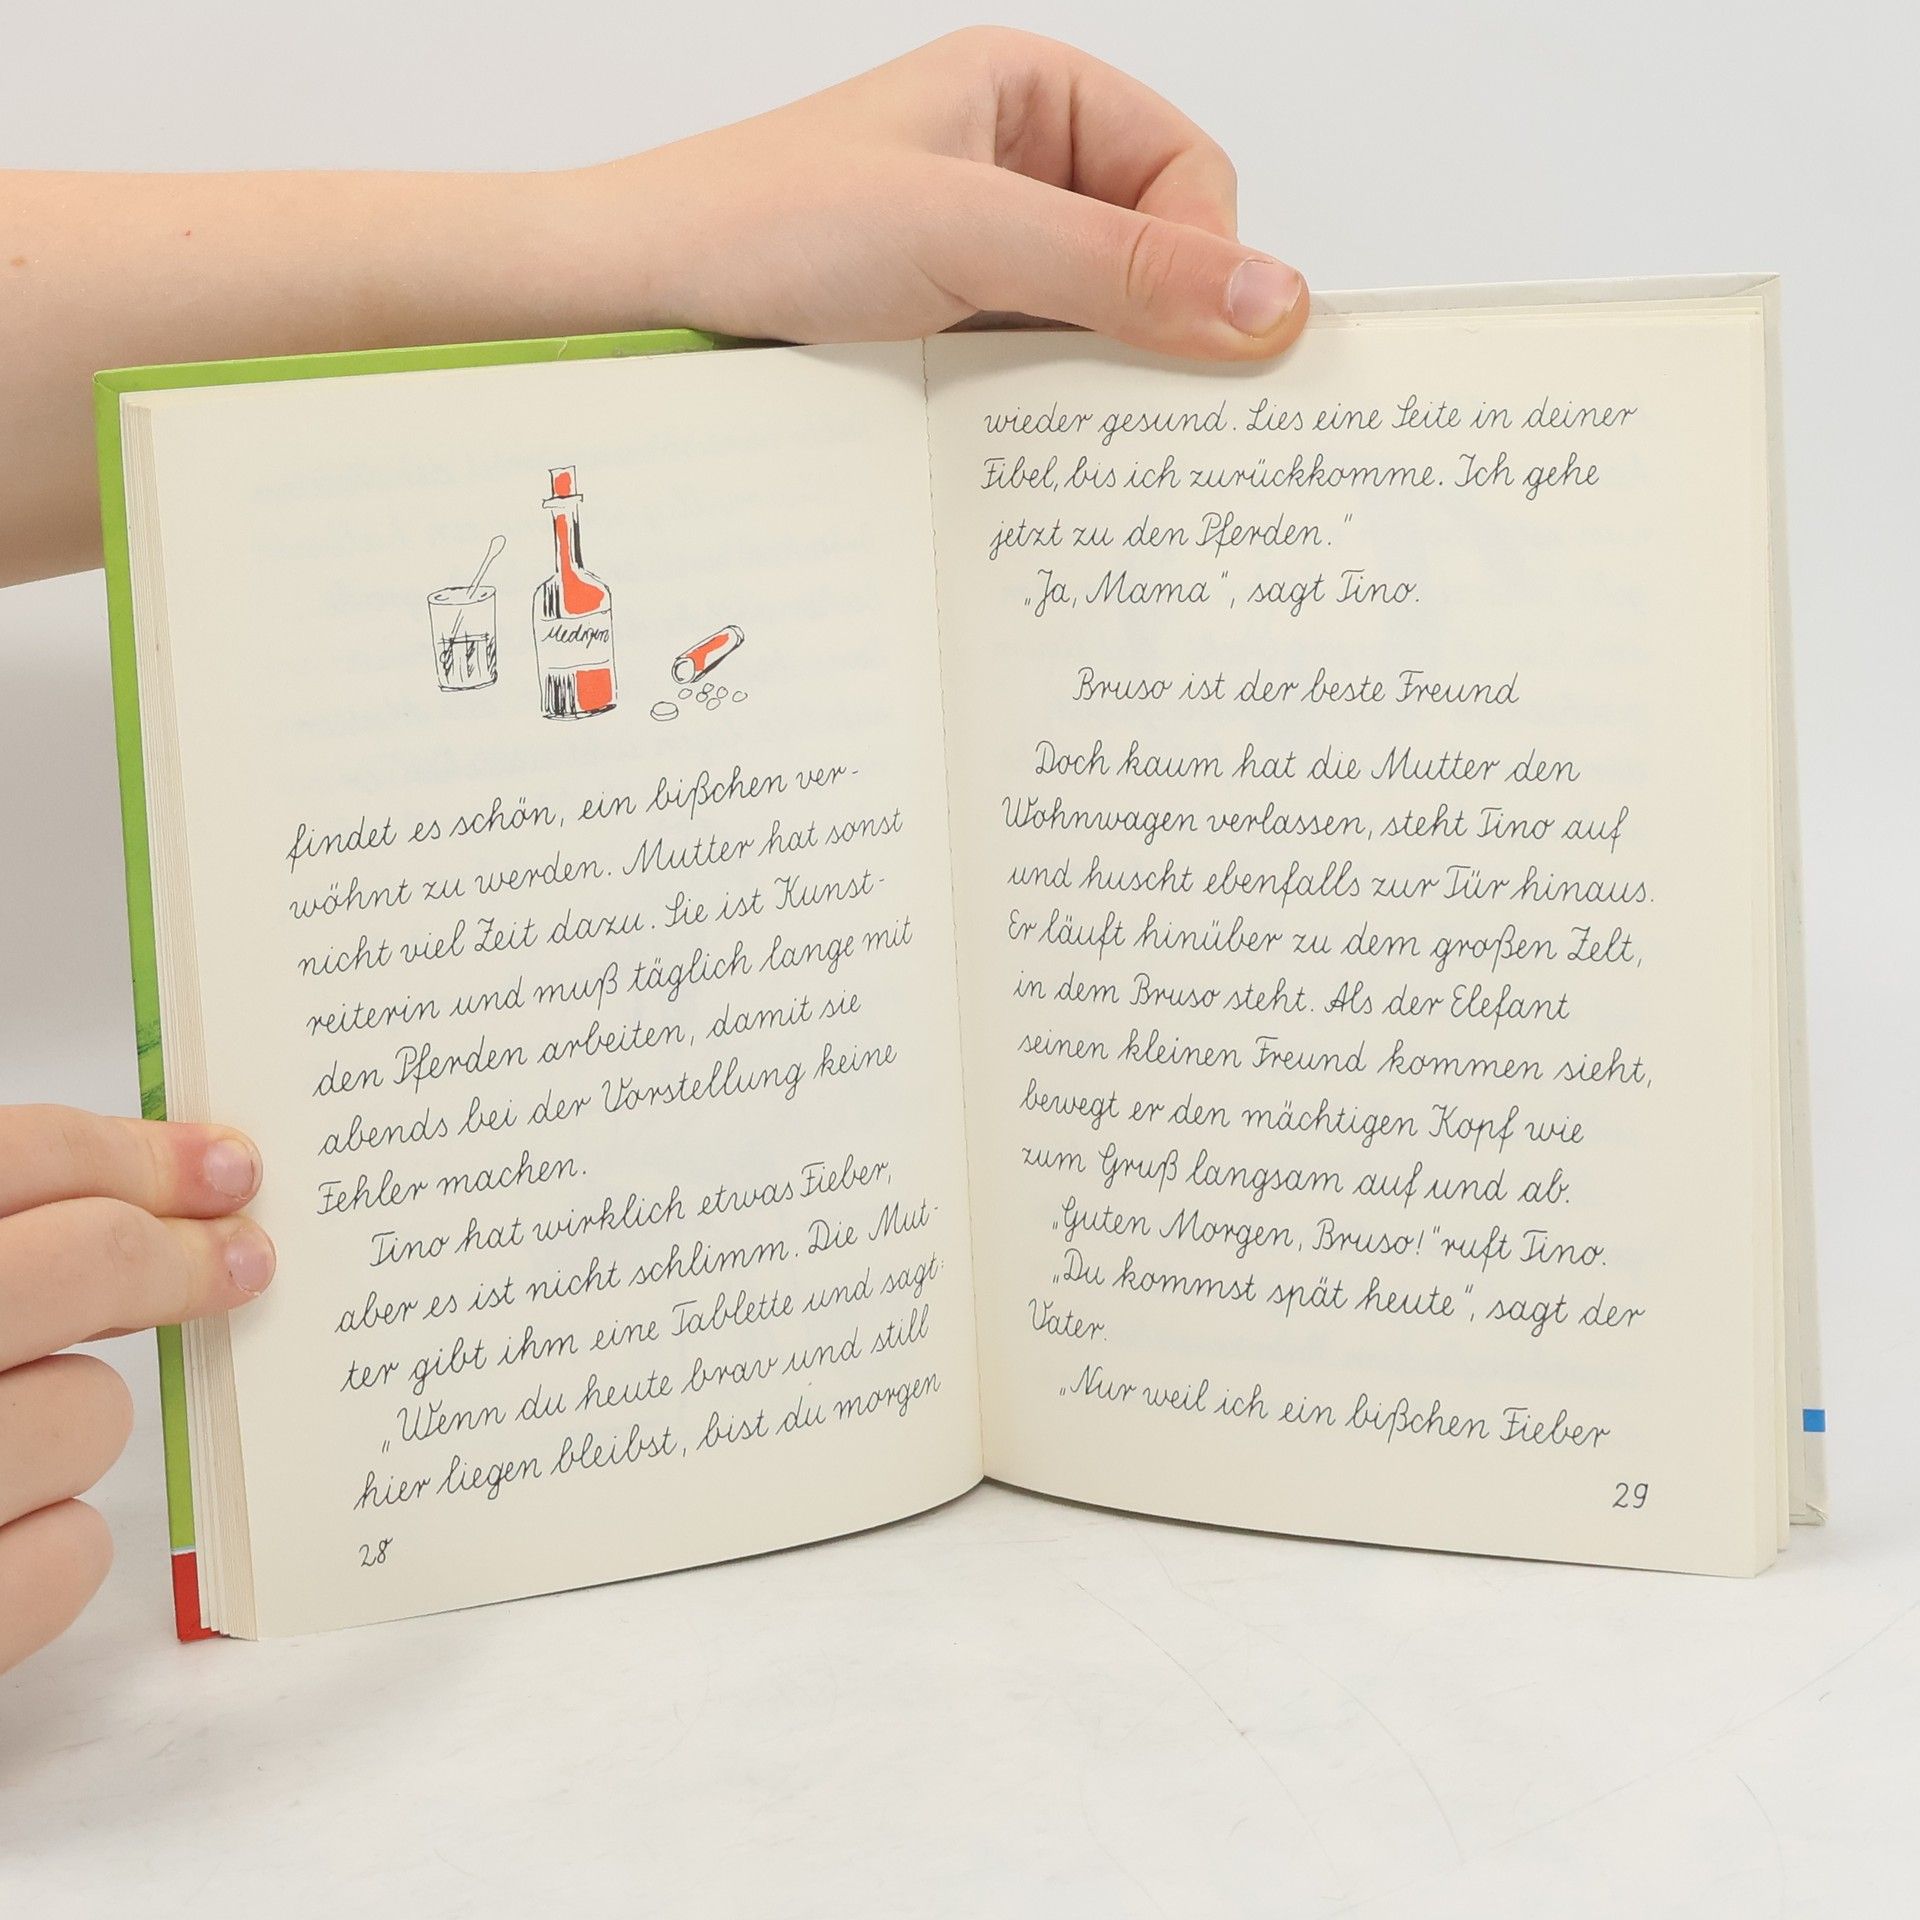 Medizin
findet es schön, ein bißchen ver-
wöhnt zu werden. Mutter hat sonst
nicht viel Zeit dazu. Sie ist Kunst-
reiterin und muß täglich lange mit
den Pferden arbeiten, damit sie
abends bei der Vorstellung keine
Fehler machen.
Tino hat wirklich etwas Fieber,
aber es ist nicht schlimm. Die Mut-
ter gibt ihm eine Tablette und sagt:
„Wenn du heute brav und still
hier liegen bleibst, bist du morgen
28
wieder gesund. Lies eine Seite in deiner
Fibel, bis ich zurückkomme. Ich gehe
jetzt zu den Pferden.“
„Ja, Mama“, sagt Tino.
Bruso ist der beste Freund
Doch kaum hat die Mutter den
Wohnwagen verlassen, steht Tino auf
und huscht ebenfalls zur Tür hinaus.
Er läuft hinüber zu dem großen Zelt,
in dem Bruso steht. Als der Elefant
seinen kleinen Freund kommen sieht,
bewegt er den mächtigen Kopf wie
zum Gruß langsam auf und ab.
„Guten Morgen, Bruso!“ ruft Tino.
„Du kommst spät heute“, sagt der
Vater.
„Nur weil ich ein bißchen Fieber
29